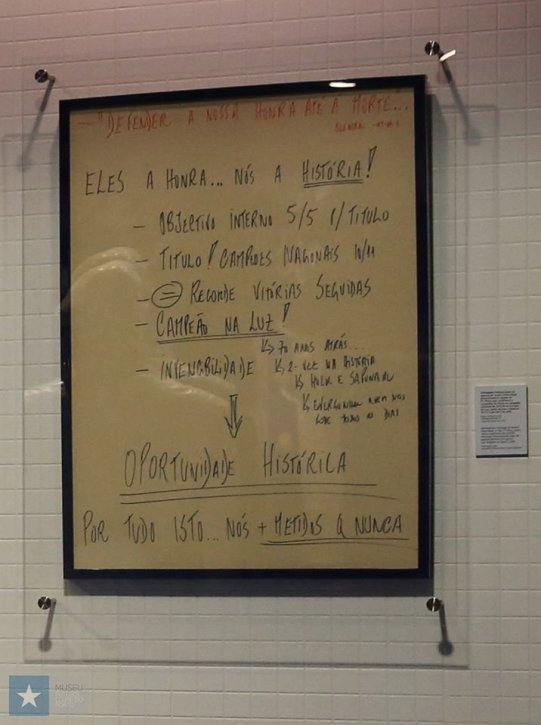 — "DEFENDER A NOSSA HONRA ATÉ A MORTE"...
ELES A HONRA... NÓS A HISTÓRIA!
— OBJECTIVO INTERNO 5/5 P/ TITULO
— TITULO! CAMPEÕES NACIONAIS 10/11
— = RECORDE VITÓRIAS SEGUIDAS
— CAMPEÃO NA LUZ!
↳ 70 ANOS ATRÁS...
— INVENCIBILIDADE ↳ 2ª VEZ NA HISTÓRIA
↳ HULK E SAPUNARU
↳ TODOS OS DIAS
OPORTUNIDADE HISTÓRICA
POR TUDO ISTO... NÓS + METIDOS Q NUNCA
MUSEU